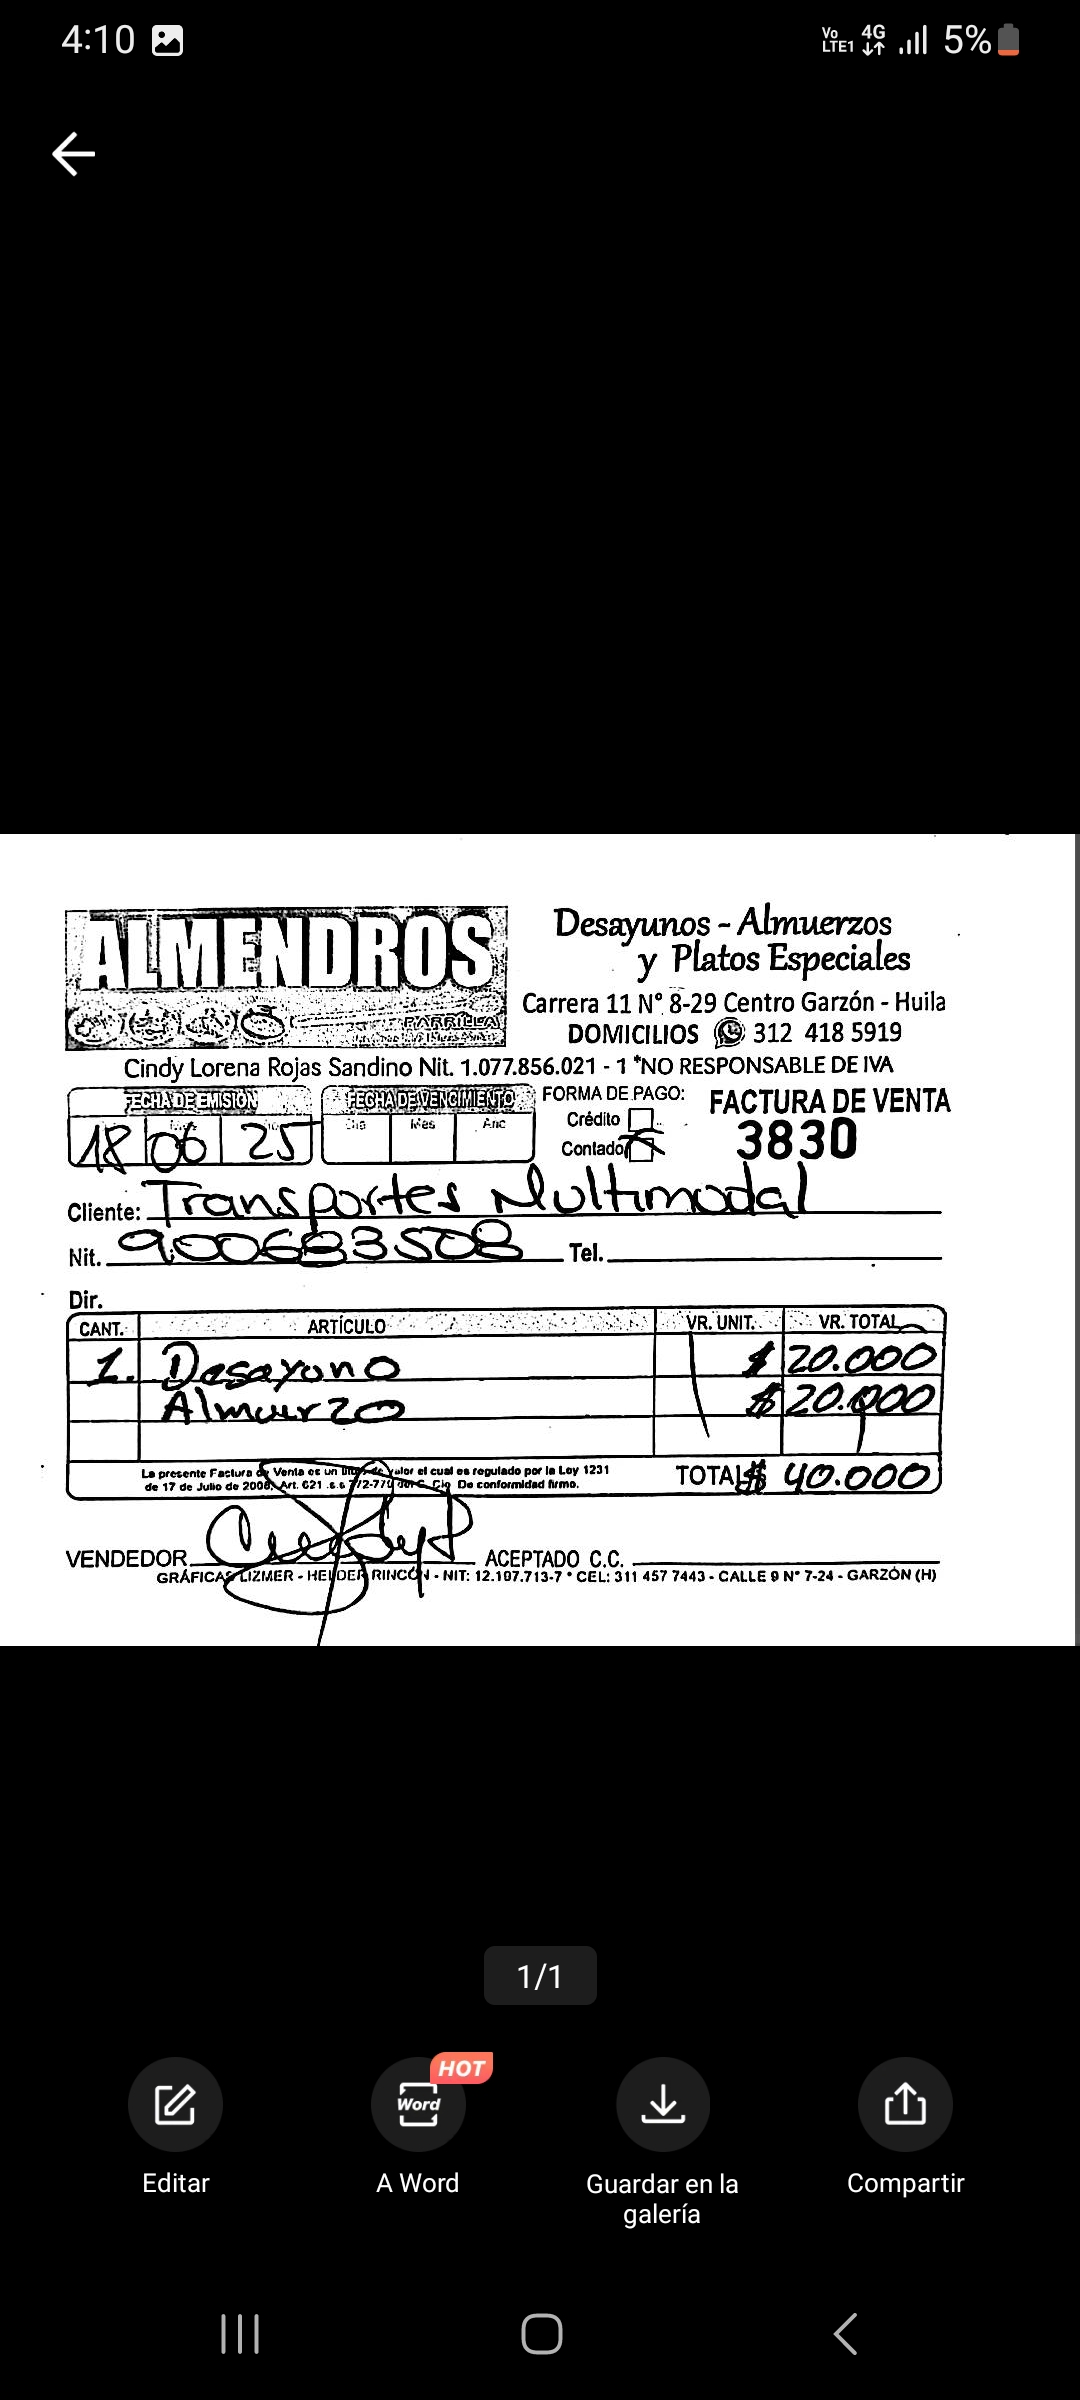 4:10
Vo LTE1 4G 5%
ALMENDROS
PARRILLA
Desayunos - Almuerzos
y Platos Especiales
Carrera 11 N° 8-29 Centro Garzón - Huila
DOMICILIOS 312 418 5919
Cindy Lorena Rojas Sandino Nit. 1.077.856.021 - 1 *NO RESPONSABLE DE IVA
FECHA DE EMISIÓN FECHA DE VENCIMIENTO FORMA DE PAGO: FACTURA DE VENTA
Día Mes Año
Crédito
18 06 25
Contado
3830
Cliente: Transportes Multimodal
Nit. 900683508 Tel.
Dir.
CANT. ARTÍCULO VR. UNIT. VR. TOTAL
1. Desayuno $ 20.000
Almuerzo $ 20.000
La presente Factura de Venta es un título valor el cual es regulado por la Ley 1231
de 17 de Julio de 2008, Art. 621 De conformidad firmo.
TOTAL $ 40.000
VENDEDOR ACEPTADO C.C.
GRÁFICAS LIZMER - HELDER RINCÓN - NIT: 12.197.713-7 * CEL: 311 457 7443 - CALLE 9 N° 7-24 - GARZÓN (H)
1/1
HOT
Word
Editar
A Word
Guardar en la
galería
Compartir